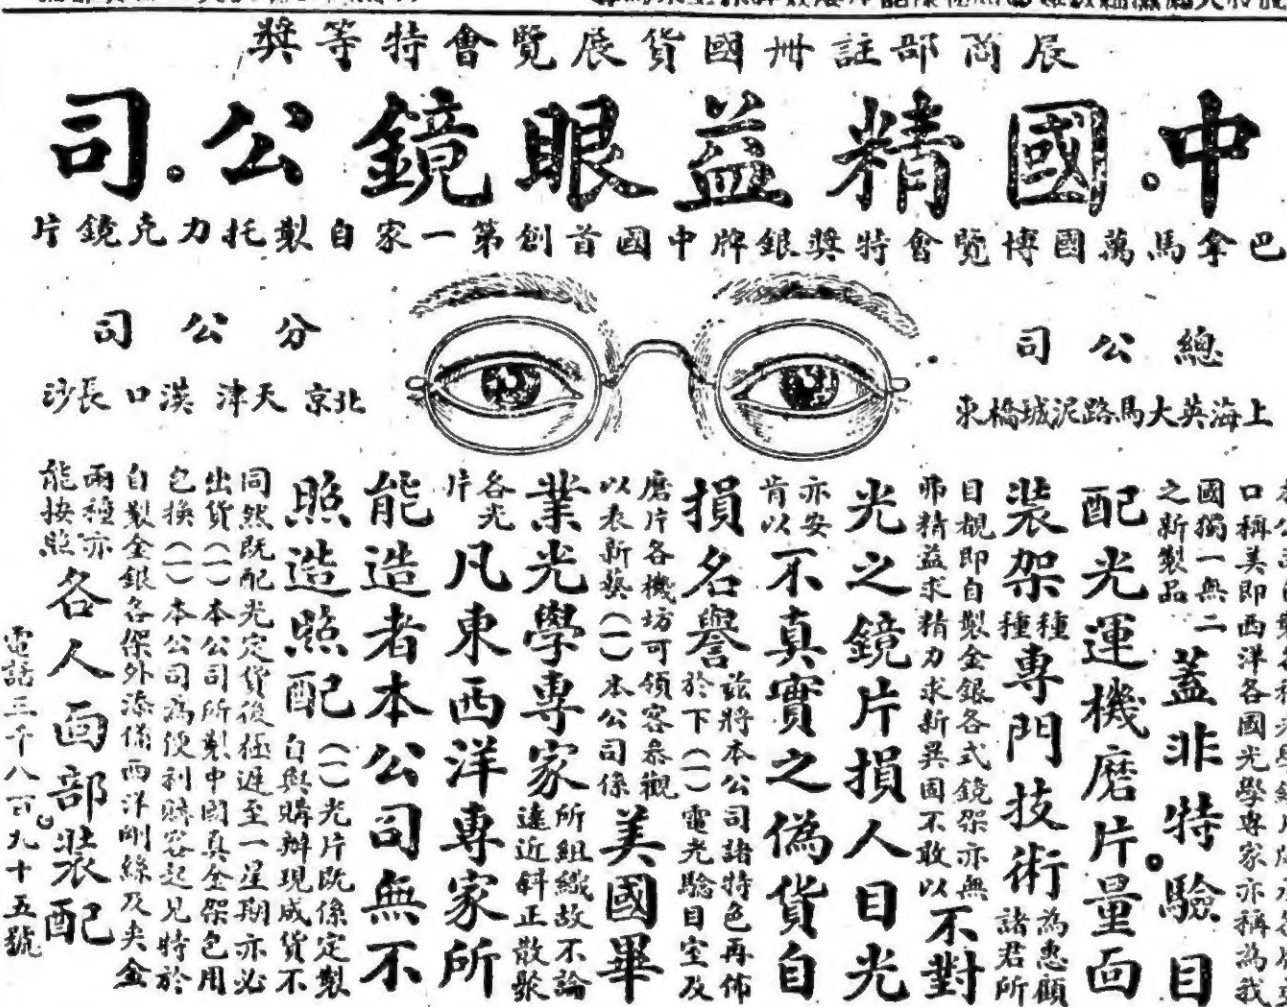 農商部註冊國貨展覽會特等獎
中國精益眼鏡公司
巴拿馬萬國博覽會特獎銀牌中國首創第一家自製托力克鏡片
總公司
上海英大馬路泥城橋東
分公司
北京 天津 漢口 長沙
口稱美即西洋各國光學專家亦稱為我
國獨一無二
之新製品
蓋非特驗目
配光運機磨片量面
裝架種種專門技術
為惠顧
諸君所
目覩即自製金銀各式鏡架亦無
弗精益求精力求新異固不敢以
不對
光之鏡片損人目光
亦安
肯以
不真實之偽貨自
損名譽
茲將本公司諸特色再佈
於下(一)電光驗目室及
磨片各機坊可領客叅觀
以表新藝(一)本公司係
美國畢
業光學專家
所組織故不論
遠近斜正散聚
各光
片
凡東西洋專家所
能造者本公司無不
照造照配
(一)光片既係定製
自與購辦現成貨不
同然既配光定貨後極遲至一星期亦必
出貨(一)本公司所製中國真金架包用
包換(一)本公司為便利賜客起見特於
自製金銀各架外添備西洋剛絲及夾金
兩種亦
能按照
各人面部裝配
電話三千八百九十五號